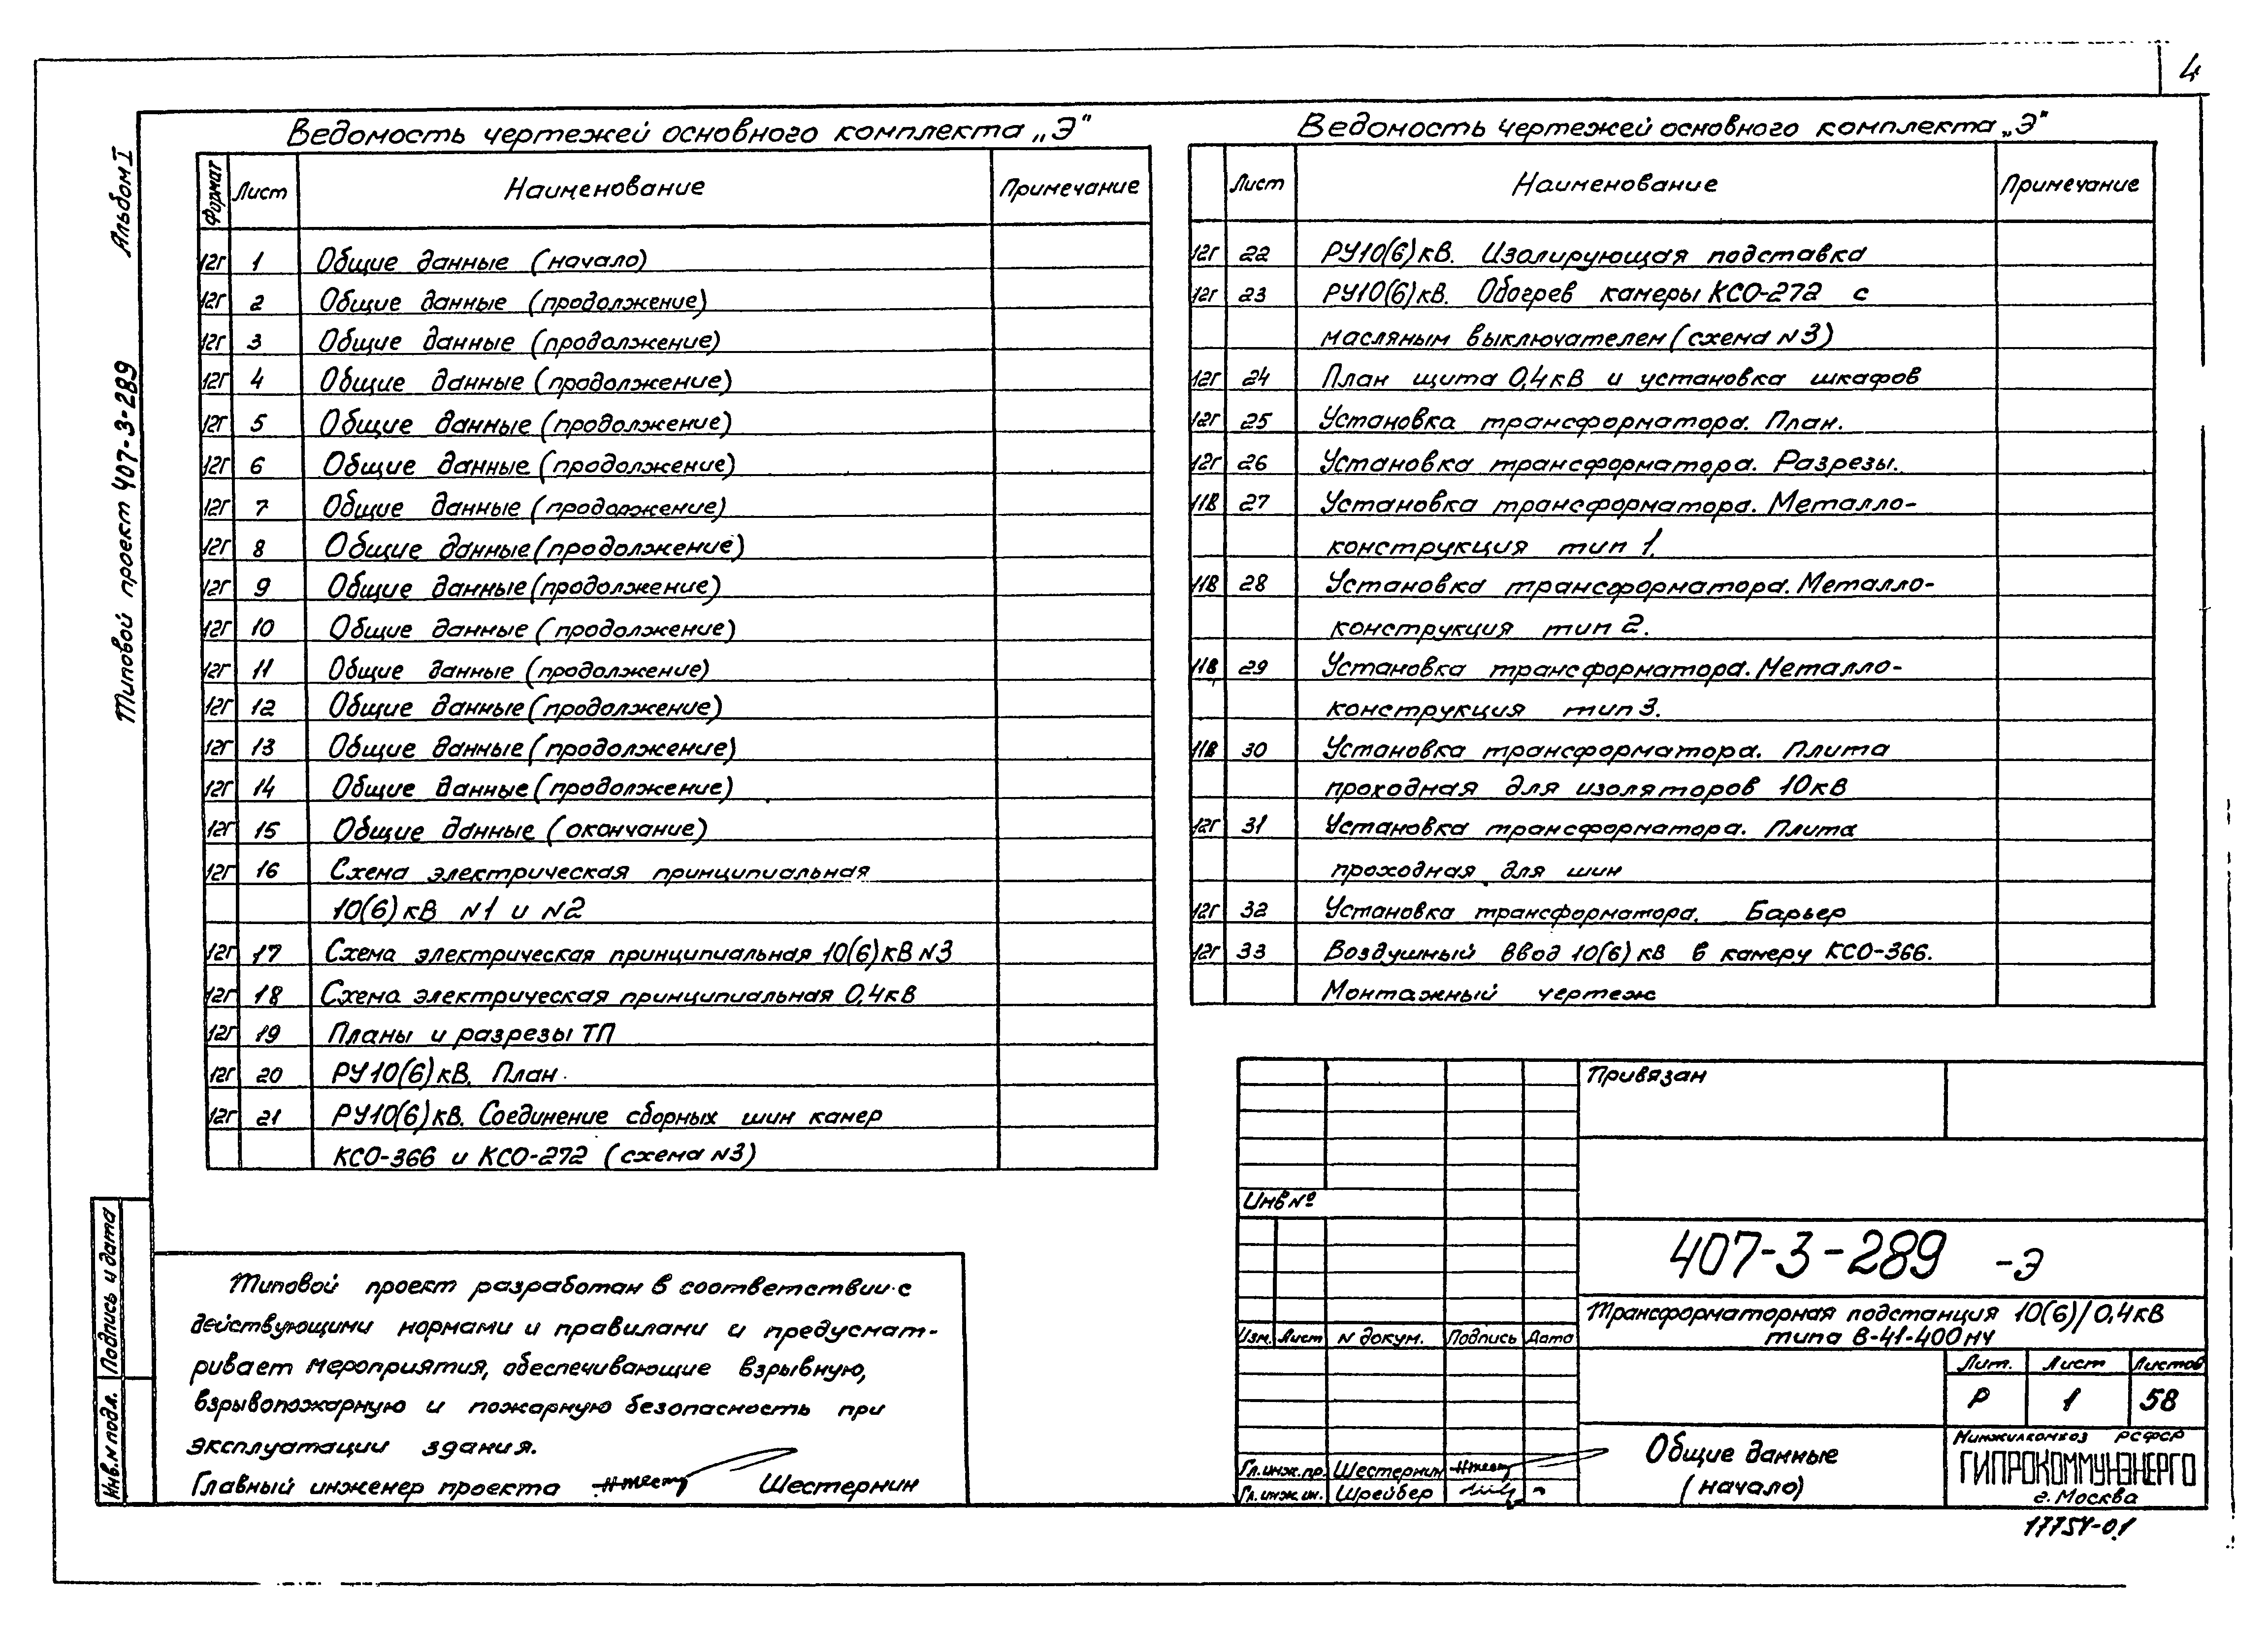 4
Альбом I
Типовой проект 407-3-289
Ведомость чертежей основного комплекта „Э"
Формат Лист Наименование Примечание
12г 1 Общие данные (начало)
12г 2 Общие данные (продолжение)
12г 3 Общие данные (продолжение)
12г 4 Общие данные (продолжение)
12г 5 Общие данные (продолжение)
12г 6 Общие данные (продолжение)
12г 7 Общие данные (продолжение)
12г 8 Общие данные (продолжение)
12г 9 Общие данные (продолжение)
12г 10 Общие данные (продолжение)
12г 11 Общие данные (продолжение)
12г 12 Общие данные (продолжение)
12г 13 Общие данные (продолжение)
12г 14 Общие данные (продолжение)
12г 15 Общие данные (окончание)
12г 16 Схема электрическая принципиальная
10(6) кВ N1 и N2
12г 17 Схема электрическая принципиальная 10(6) кВ N3
12г 18 Схема электрическая принципиальная 0,4кВ
12г 19 Планы и разрезы ТП
12г 20 РУ10(6) кВ. План.
12г 21 РУ10(6) кВ. Соединение сборных шин камер
КСО-366 и КСО-272 (схема N3)
Ведомость чертежей основного комплекта „Э"
Лист Наименование Примечание
12г 22 РУ10(6) кВ. Изолирующая подставка
12г 23 РУ10(6) кВ. Обогрев камеры КСО-272 с
масляным выключателем (схема N3)
12г 24 План щита 0,4кВ и установка шкафов
12г 25 Установка трансформатора. План.
12г 26 Установка трансформатора. Разрезы.
11в 27 Установка трансформатора. Металло-
конструкция тип 1.
11в 28 Установка трансформатора. Металло-
конструкция тип 2.
11в 29 Установка трансформатора. Металло-
конструкция тип 3.
11в 30 Установка трансформатора. Плита
проходная для изоляторов 10кВ
12г 31 Установка трансформатора. Плита
проходная для шин
12г 32 Установка трансформатора. Барьер
12г 33 Воздушный ввод 10(6) кВ в камеру КСО-366.
Монтажный чертеж
Типовой проект разработан в соответствии с
действующими нормами и правилами и предусмат-
ривает мероприятия, обеспечивающие взрывную,
взрывопожарную и пожарную безопасность при
эксплуатации здания.
Главный инженер проекта Шестернин
Подпись и дата
Инв. N подл.
Привязан
Инв №
407-3-289 -Э
Трансформаторная подстанция 10(6)/0,4кВ
типа В-41-400 МУ
Изм. Лист N докум. Подпись Дата
Лит. Лист Листов
Р 1 58
Общие данные
(начало)
Гл. инж. пр. Шестернин
Гл. инж. ин. Шрейбер
Минжилкомхоз РСФСР
ГИПРОКОММУНЭНЕРГО
г. Москва
17754-01